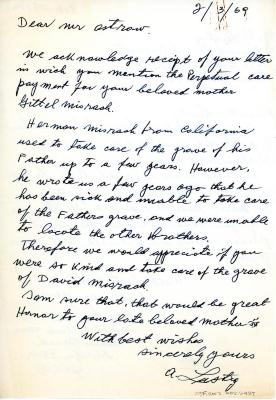 2/3/69
Dear mr astrow.
We acknowledge receipt of your letter
in wich you mention the Perpetual care
payment for your beloved mother
Gittel Misrach.
Herman Misrach from California
used to take care of the grave of his
Father up to a few years. However,
he wrote us a few years ago that he
has been sick and unable to take care
of the Fathers grave, and we were unable
to locate the other Brothers.
Therefore we would appreciate if you
were so kind and take care of the grave
of David Misrach.
Iam sure that, that would be great
Honor to your late beloved mother
With best wishes
sincerely yours
A. Lasty